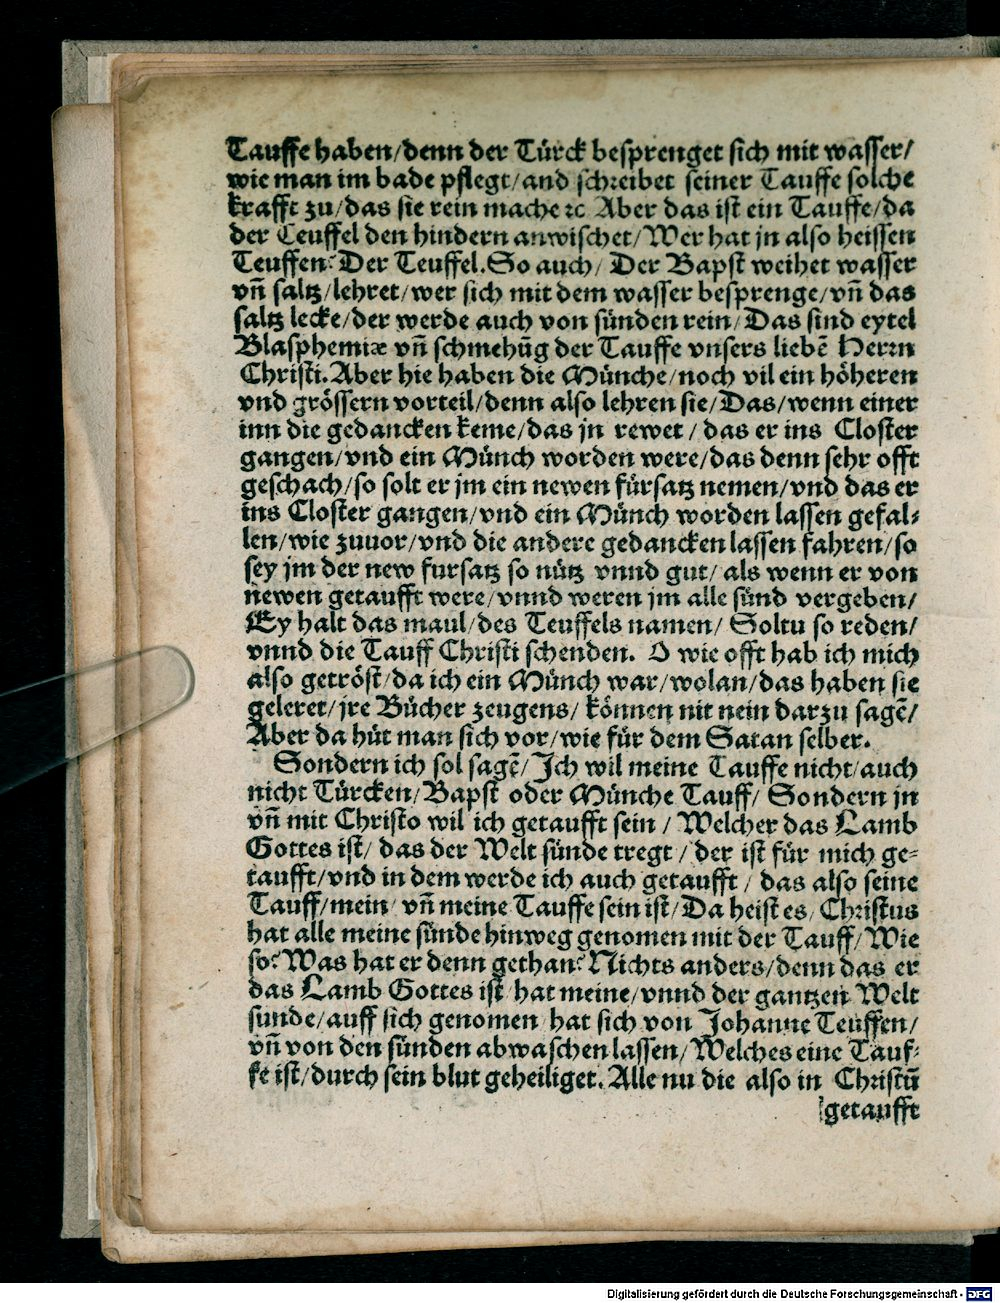 Tauffe haben/denn der Türck besprenget sich mit wasser/
wie man im bade pflegt/and schreibet seiner Tauffe solche
krafft zu/das sie rein mache ꝛc Aber das ist ein Tauffe/da
der Teuffel den hindern anwischet/Wer hat jn also heissen
Teuffen? Der Teuffel. So auch/ Der Bapst weihet wasser
vñ saltz/lehret/wer sich mit dem wasser besprenge/vñ das
saltz lecke/der werde auch von sünden rein/Das sind eytel
Blasphemiæ vñ schmehũg der Tauffe vnsers liebẽ Herrn
Christi. Aber hie haben die Münche/noch vil ein höheren
vnd grössern vorteil/denn also lehren sie/Das/wenn einer
inn die gedancken keme/das jn rewet/das er ins Closter
gangen/vnd ein Münch worden were/das denn sehr offt
geschach/so solt er jm ein newen fürsatz nemen/vnd das er
ins Closter gangen/vnd ein Münch worden lassen gefal⸗
len/wie zuuor/vnd die andere gedancken lassen fahren/so
sey jm der new fursatz so nütz vnnd gut/ als wenn er von
newen getaufft were/vnnd weren jm alle sünd vergeben/
Ey halt das maul/des Teuffels namen/ Soltu so reden/
vnnd die Tauff Christi schenden. O wie offt hab ich mich
also getröst/da ich ein Münch war/wolan/das haben sie
geleret/jre Bücher zeugens/ können nit nein darzu sagẽ/
Aber da hüt man sich vor/wie für dem Satan selber.
Sondern ich sol sagẽ/Ich wil meine Tauffe nicht/auch
nicht Türcken/Bapst oder Münche Tauff/ Sondern jn
vñ mit Christo wil ich getaufft sein/ Welcher das Lamb
Gottes ist/ das der Welt sünde tregt/ der ist für mich ge⸗
taufft/vnd in dem werde ich auch getaufft/ das also seine
Tauff/mein/ vñ meine Tauffe sein ist/Da heist es/Christus
hat alle meine sünde hinweg genomen mit der Tauff/Wie
so? Was hat er denn gethan? Nichts anders/denn das er
das Lamb Gottes ist/hat meine/vnnd der gantzen Welt
sunde/auff sich genomen/hat sich von Johanne Teuffen/
vñ von den sünden abwaschen lassen/Welches eine Tauf⸗
fe ist/durch sein blut geheiliget. Alle nu die also in Christũ
getaufft
Digitalisierung gefördert durch die Deutsche Forschungsgemeinschaft - DFG